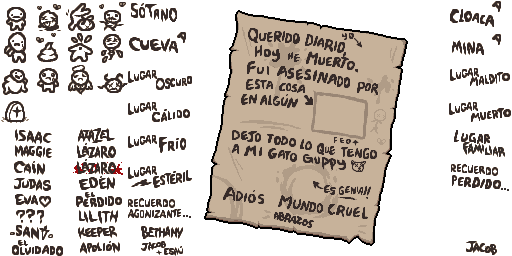 SÓTANO
CUEVA
LUGAR OSCURO
LUGAR CÁLIDO
LUGAR FRÍO
LUGAR ESTÉRIL
RECUERDO AGONIZANTE...
ISAAC
MAGGIE
CAÍN
JUDAS
EVA
???
SANS
EL OLVIDADO
AZAZEL
LÁZARO
LÁZARO
EDÉN
EL PERDIDO
LILITH
KEEPER
APOLIÓN
BETHANY
JACOB + ESAÚ
QUERIDO DIARIO,
HOY HE MUERTO.
FUI ASESINADO POR
ESTA COSA
EN ALGÚN
YO
FEO
DEJO TODO LO QUE TENGO
A MI GATO GUPPY
ES GENIAL!!
ADIÓS MUNDO CRUEL
ABRAZOS
CLOACA
MINA
LUGAR MALDITO
LUGAR MUERTO
LUGAR FAMILIAR
RECUERDO PERDIDO...
JACOB